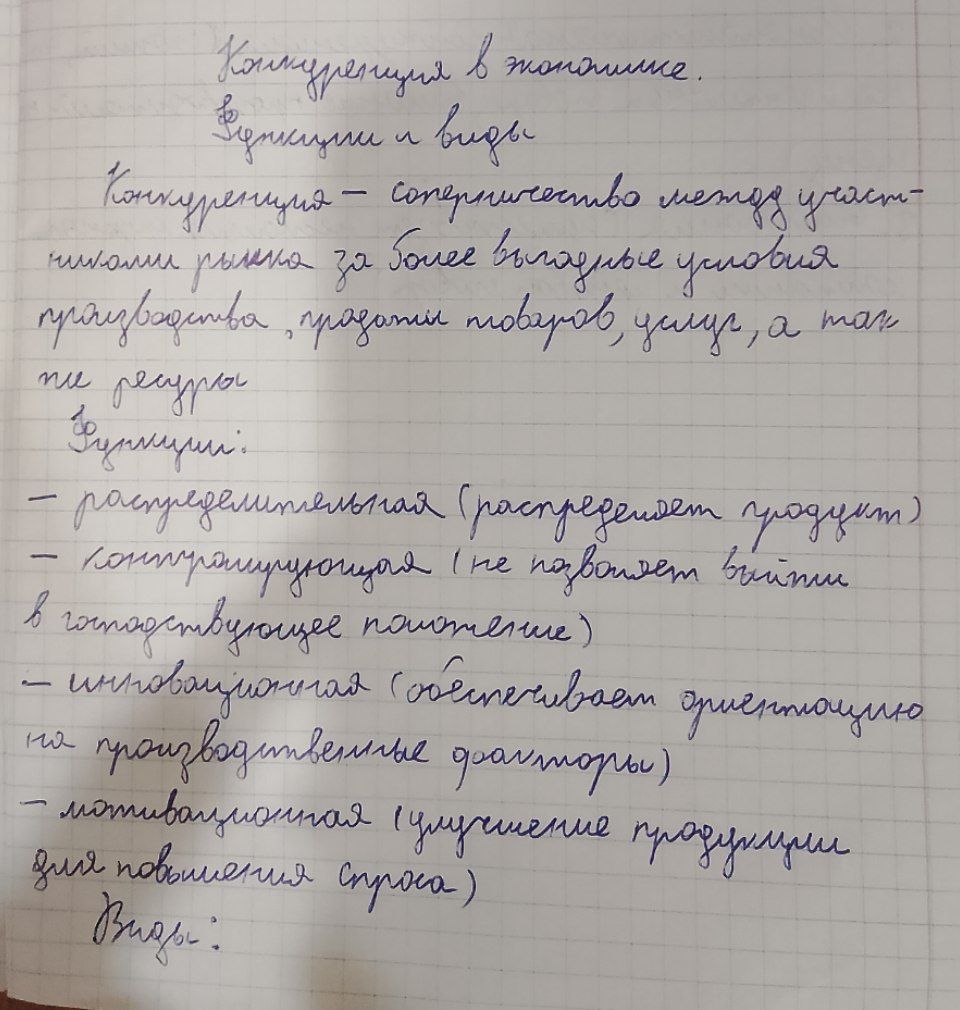 Конкуренция в экономике.
Функции и виды
Конкуренция — соперничество между участ-
никами рынка за более выгодные условия
производства, продажи товаров, услуг, а так
же ресуры
Функции:
— распределительная (распределяет продукт)
— контролирующая (не позволяет выйти
в господствующее положение)
— инновационная (обеспечивает ориентацию
на производственные факторы)
— мотивационная (улучшение продукции
для повышения спроса)
Виды: